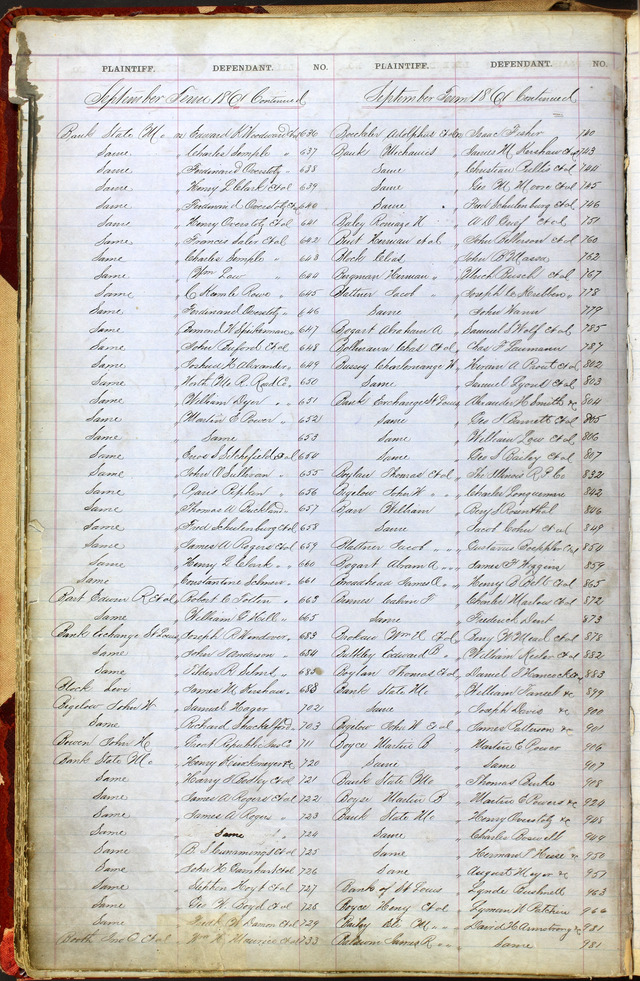 PLAINTIFF. DEFENDANT. NO.
September Term 1861 Continued
Bank State Mo. vs Edward K Woodward &al 636
Same " Charles Semple " 637
Same " Ferdinand Overstolz " 638
Same " Henry L Clark et al 639
Same " Ferdinand Overstolz et al 640
Same " Henry Overstolz et al 641
Same " Francis Saler et al 642
Same " Charles Semple " 643
Same " Wm Low " 644
Same " C Kemble Rowe " 645
Same " Ferdinand Overstolz " 646
Same " Bernard W Spikerman " 647
Same " John Buford et al 648
Same " Joshua H Alexander " 649
Same " North Mo R. Road Co. " 650
Same " William Dyer " 651
Same " Martin E Power " 652
Same " Same " 653
Same " Enos S Litchfield et al 654
Same " John O Sullivan " 655
Same " Paris Pipkin " 656
Same " Thomas A Buckland " 657
Same " Fred Schulenburg et al 658
Same " James A Rogers et al 659
Same " Henry L Clark " 660
Same " Constantine 661
Bart Edwin R et al " Robert C Totten " 663
Same " William G Hill " 665
Bank Exchange St Louis " Joseph R Vandover " 683
Same " John S Anderson " 684
Same " Tilden R Selmes " 685
Block Levi " James M Kershaw " 688
Bigelow John W " Samuel Hager " 702
Same " Richard Shackelford " 703
Bowen John H " Great Republic Ins Co. 711
Bank State Mo " Henry 720
Same " Harry S Bodley et al 721
Same " James A Rogers et al 722
Same " James A Rogers " 723
Same " Same " 724
Same " B S Cummings et al 725
Same " John H Gamhart et al 726
Same " Stephen Hoyt et al 727
Same " Geo W Boyd et al 728
Same " W Damon et al 729
Booth Jno C et al " Wm H Maurice et al 733
PLAINTIFF. DEFENDANT. NO.
September Term 1861 Continued
Boeckler Adolphus et al vs Isaac Fisher 740
Bank Mechanics " James M Kershaw et al 743
Same " Christian Pullis et al 744
Same " Geo M Moore et al 745
Same " Fred Schulenburg et al 746
Baley Romazo N " A D et al 751
Burt Herman et al " John Patterson et al 760
Block Elias " John B Massa 762
Bergman Herman " " Ulrich Busch et al 767
Battner Jacob " " Joseph C 778
Same " John Wann 779
Bogart Abraham A " Samuel S Wolf et al 785
Bollmann Chas et al " Chas F Laumann 787
Bussey Charlemange W " Hiram A Prout et al 802
Same " Samuel Lyons et al 803
Bank Exchange St Louis " Alexander H Smith &c 804
Same " Geo S Barrett et al 805
Same " William Low et al 806
Same " Geo S Bailey et al 807
Boylan Thomas et al " The Illinois R. R Co 832
Bigelow John W " " Charles Longuemare 842
Barr William " Benj S Rosenthal 846
Same " Jacob Cohn et al 849
Blattner Jacob " " Gustavus 854
Bogart Abram A " " James F Wiggins 859
Broadhead James O " Henry B Belt et al 865
Bennes Calvin F " Charles Marlow et al 872
Same " Frederick Dent 873
Brokaw Wm U et al " Benj W Mead et al 878
Battley Edward B " " William Keeler et al 882
Boylan Thomas et al " Daniel S Hancock et al 883
Bank State Mo " William Tansel &c 899
Same " Joseph Davis &c 900
Bigelow John W et al " James Patterson &c 901
Boyce Martin B " Martin E Power 906
Same " Same " 907
Bank State Mo " Thomas Burke 908
Boyse Martin B " Martin E Powers &c 924
Bank State Mo " Henry Overstolz &c 948
Same " Charles Boswell 949
Same " Herman T &c 950
Same " August Meyer &c 957
Bank of St Louis " Lynde Bushnell 963
Boyce Henry et al " Lyman W Patchin 966
Bailey Eli M " " David H Armstrong &c 981
Baldwin James R " " Same 981